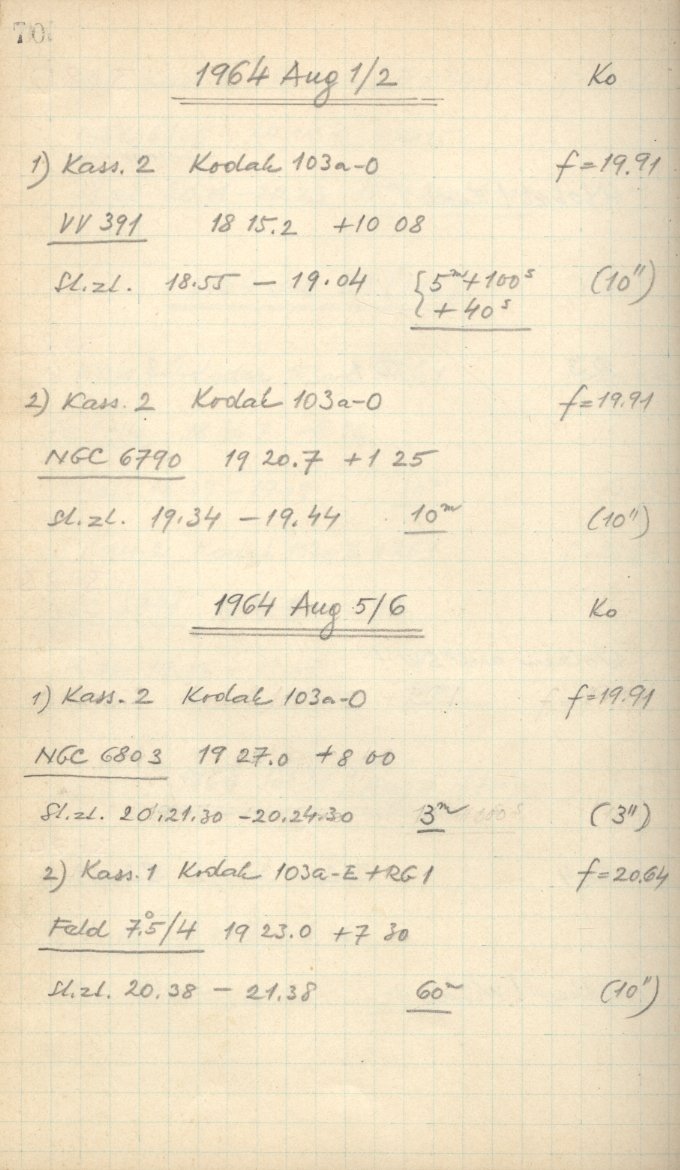 701
1964 Aug 1/2 Ko
1) Kass. 2 Kodak 103a-O f=19.91
VV 391 18 15.2 +10 08
St.zt. 18.55 – 19.04 {5ᵐ+100ˢ (10")
+ 40ˢ
2) Kass. 2 Kodak 103a-O f=19.91
NGC 6790 19 20.7 +1 25
St.zt. 19.34 – 19.44 10ᵐ (10")
1964 Aug 5/6 Ko
1) Kass. 2 Kodak 103a-O f=19.91
NGC 6803 19 27.0 +8 00
St.zt. 20.21.30 – 20.24.30 3ᵐ (3")
2) Kass. 1 Kodak 103a-E+RG1 f=20.64
Feld 7.°5/4 19 23.0 +7 30
St.zt. 20.38 – 21.38 60ᵐ (10")